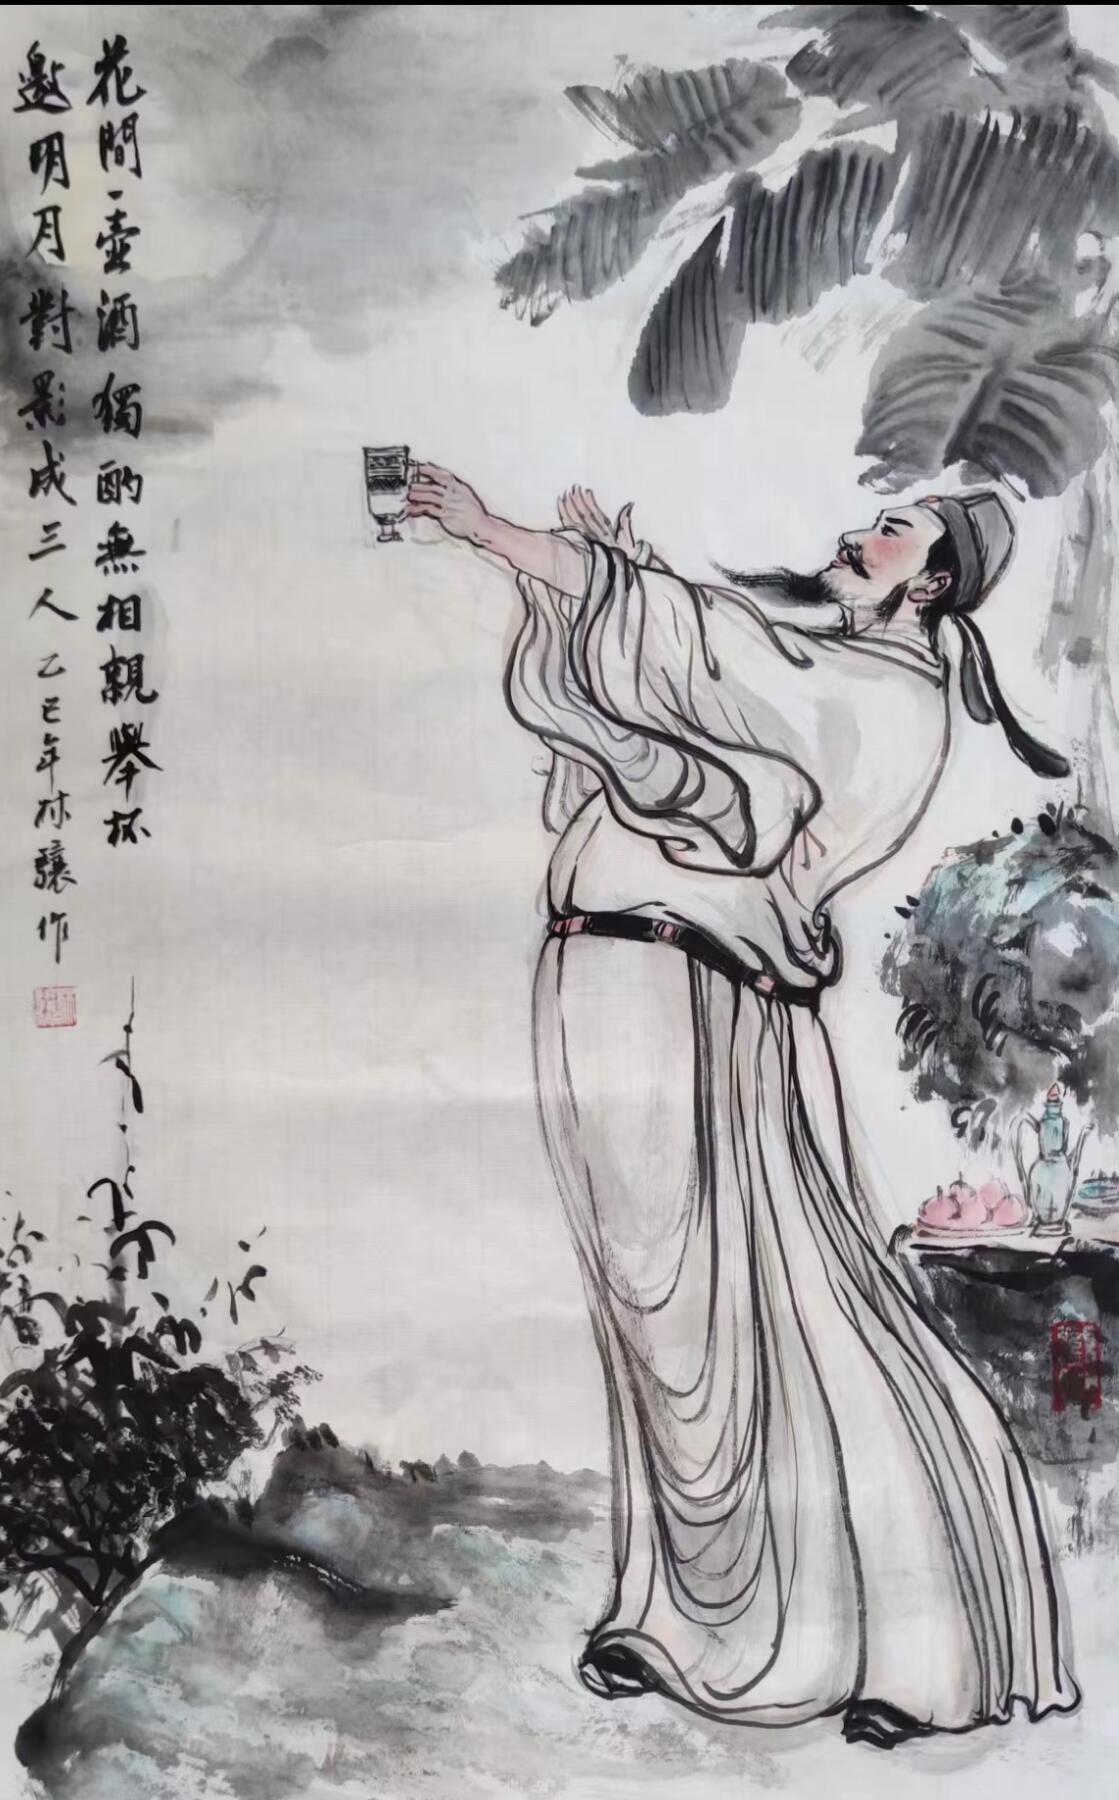 花間一壺酒獨酌無相親舉杯
邀明月對影成三人乙巳年林驤作